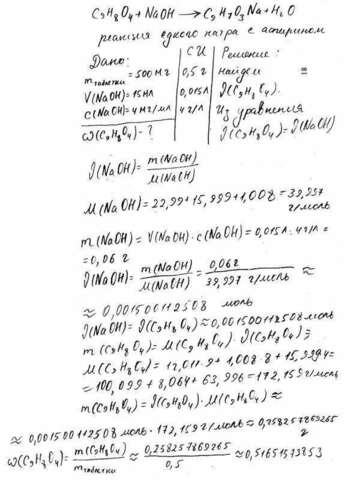 C₉H₈O₄ + NaOH → C₉H₇O₃Na + H₂O
реакция едкого натра с аспирином
Дано:
m таблетки = 500 мг
V(NaOH) = 15 мл
c(NaOH) = 4 мг/мл
ω(C₉H₈O₄) - ?
СИ
0,5 г
0,015 л
4 г/л
Решение:
найдем =
ν(C₉H₈O₄).
Из уравнения
ν(C₉H₈O₄) = ν(NaOH)
ν(NaOH) = m(NaOH)/M(NaOH)
M(NaOH) = 22,99 + 15,999 + 1,008 = 39,997 г/моль
m(NaOH) = V(NaOH) · c(NaOH) = 0,015 л · 4 г/л =
= 0,06 г
ν(NaOH) = m(NaOH)/M(NaOH) = 0,06 г/39,997 г/моль ≈
≈ 0,001500112508 моль
ν(NaOH) = ν(C₉H₈O₄) ≈ 0,001500112508 моль
m(C₉H₈O₄) = M(C₉H₈O₄) · ν(C₉H₈O₄) =
M(C₉H₈O₄) = 12,011·9 + 1,008·8 + 15,999·4 =
= 100,099 + 8,064 + 63,996 = 172,159 г/моль
m(C₉H₈O₄) = ν(C₉H₈O₄) · M(C₉H₈O₄) ≈
≈ 0,001500112508 моль · 172,159 г/моль ≈ 0,258257869265 г
ω(C₉H₈O₄) = m(C₉H₈O₄)/m таблетки ≈ 0,258257869265/0,5 ≈ 0,51651573853